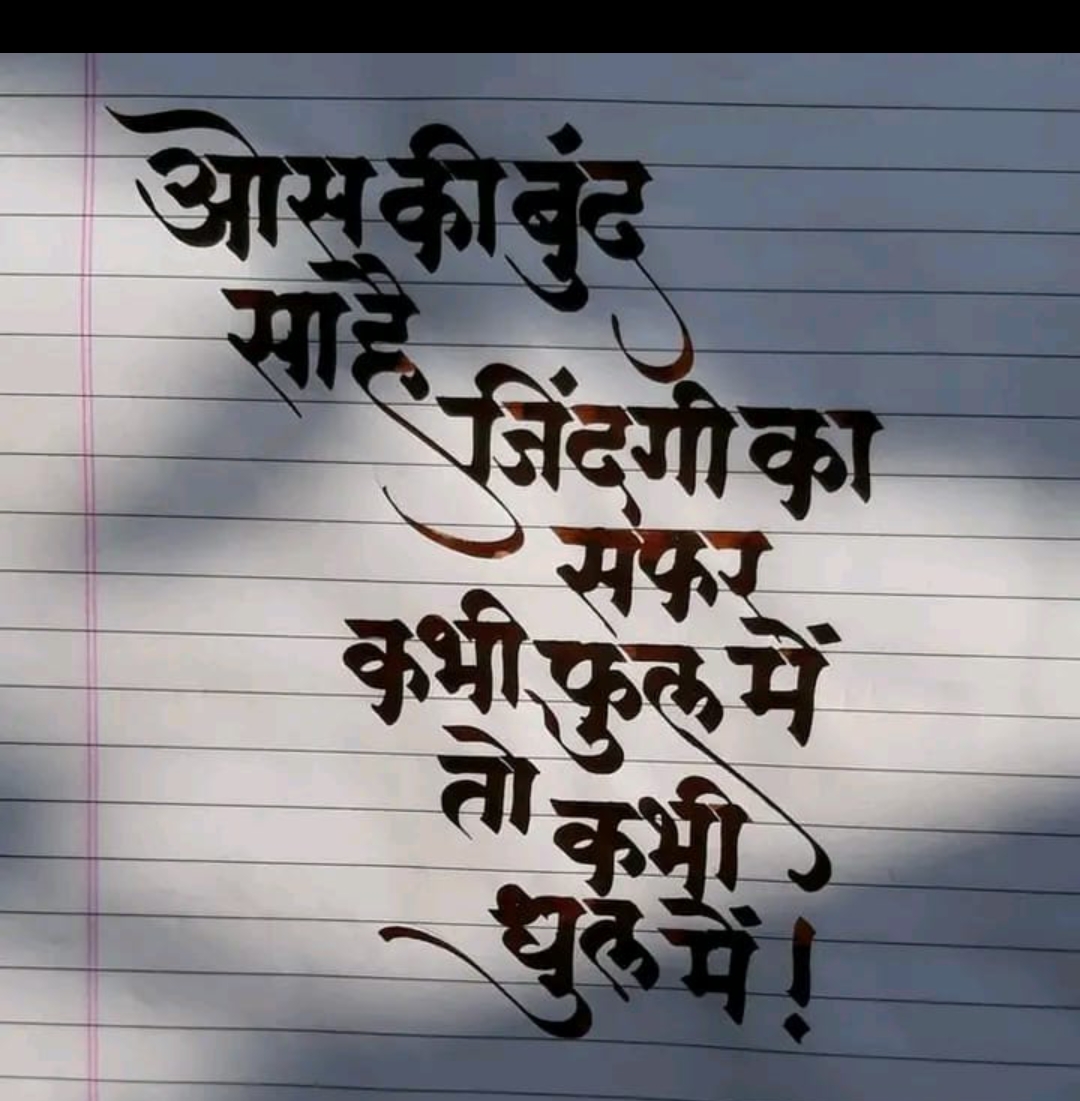 ओस की बुंद
सा है
जिंदगी का
सफर
कभी फुल में
तो कभी
धुल में !